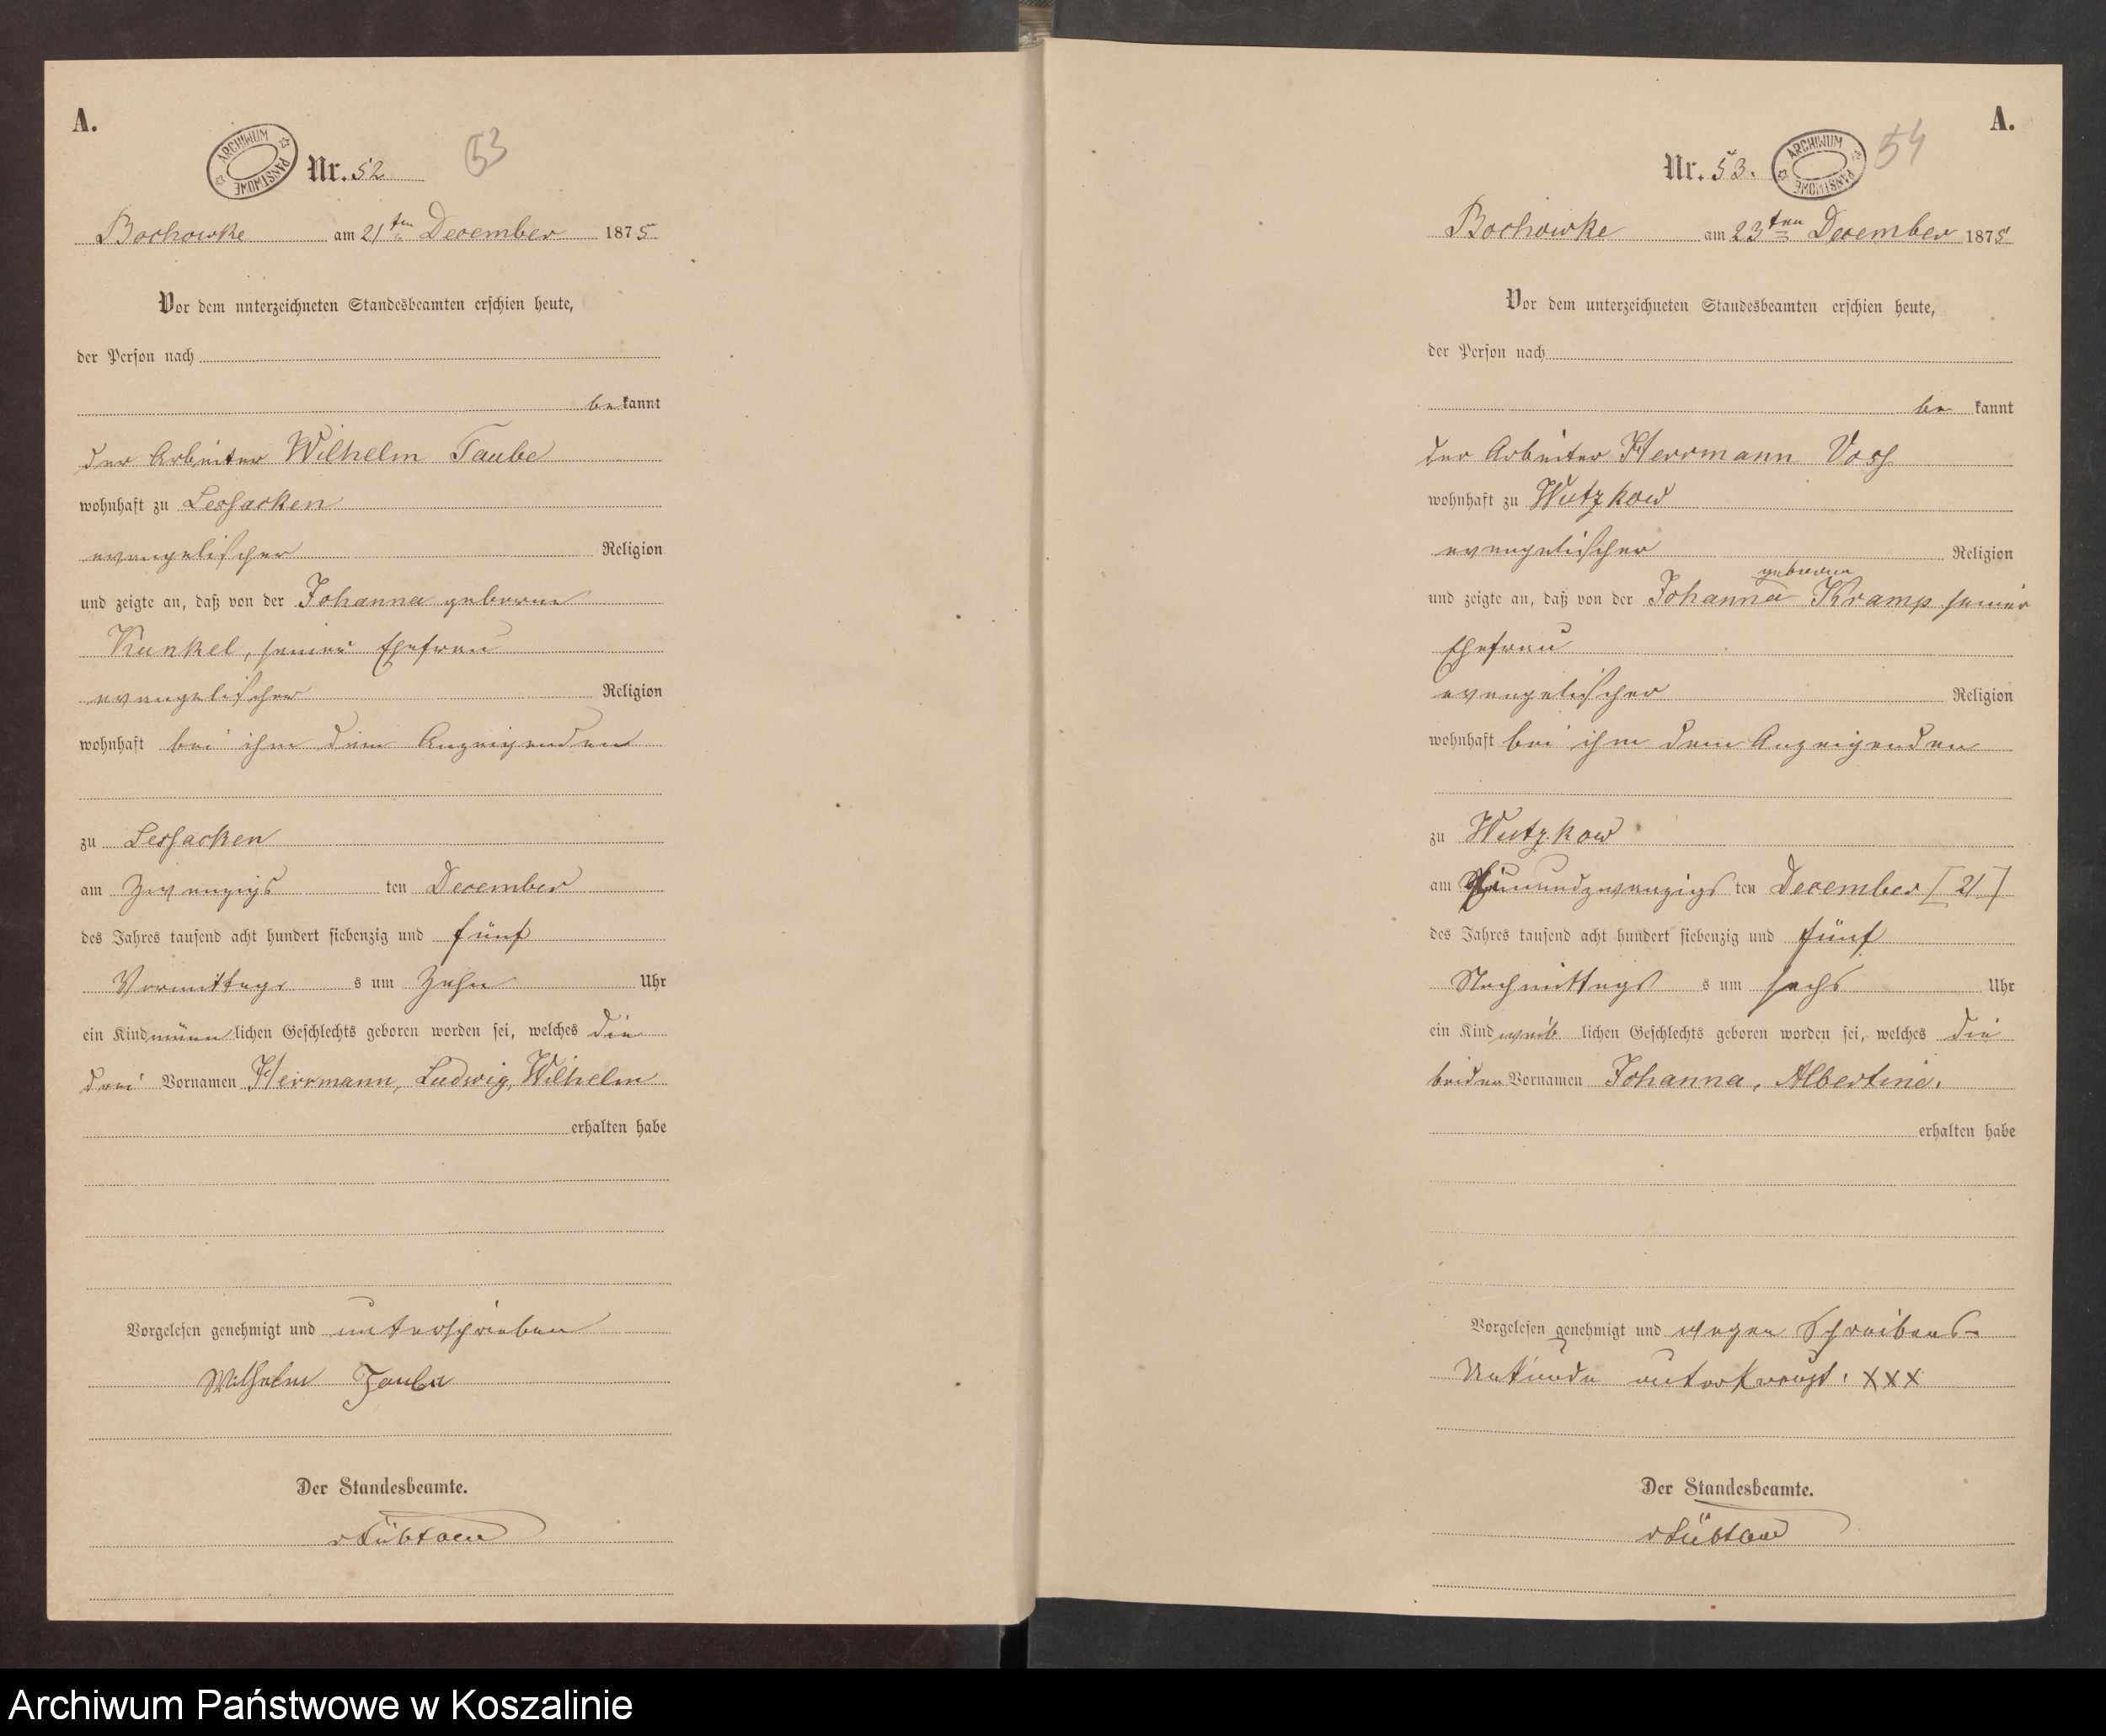 A.
ARCHIWUM PAŃSTWOWE
Nr. 52
53
Bochowke am 21ten December 1875
Vor dem unterzeichneten Standesbeamten erschien heute,
der Person nach
bekannt
der Arbeiter Wilhelm Taube
wohnhaft zu Lessacken
evangelischer Religion
und zeigte an, daß von der Johanna geborne
Kunkel, seiner Ehefrau
evangelischer Religion
wohnhaft bei ihm dem Anzeigenden
zu Lessacken
am Zwanzigs ten December
des Jahres tausend acht hundert siebenzig und fünf
Vormittags s um Zehn Uhr
ein Kind männlichen Geschlechts geboren worden sei, welches die
drei Vornamen Herrmann, Ludwig, Wilhelm
erhalten habe
Vorgelesen genehmigt und unterschrieben
Wilhelm Taube
Der Standesbeamte.
A.
Nr. 53.
ARCHIWUM PAŃSTWOWE
54
Bochowke am 23ten December 1875
Vor dem unterzeichneten Standesbeamten erschien heute,
der Person nach
be kannt
der Arbeiter Herrmann Voss
wohnhaft zu Wutzkow
evangelischer Religion
geborene
und zeigte an, daß von der Johanna Kramp seiner
Ehefrau
evangelischer Religion
wohnhaft bei ihm dem Anzeigenden
zu Wutzkow
am Einundzwanzigs ten December [21]
des Jahres tausend acht hundert siebenzig und fünf
Nachmittags s um sechs Uhr
ein Kind weib lichen Geschlechts geboren worden sei, welches die
beiden Vornamen Johanna, Albertine.
erhalten habe
Vorgelesen genehmigt und wegen Schreibens-
Unkunde unterkreuzt. XXX
Der Standesbeamte.
Archiwum Państwowe w Koszalinie